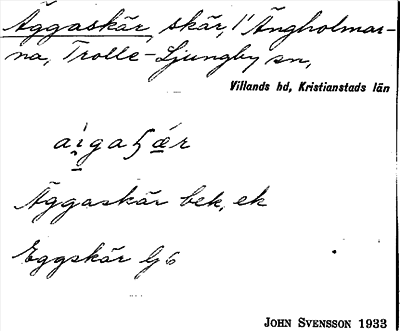 Äggaskär, skär, i Ängholmar-
na, Trolle-Ljungby sn,
Villands hd, Kristianstads län
Äggaskär bek, ek
Eggskär
JOHN SVENSSON 1933